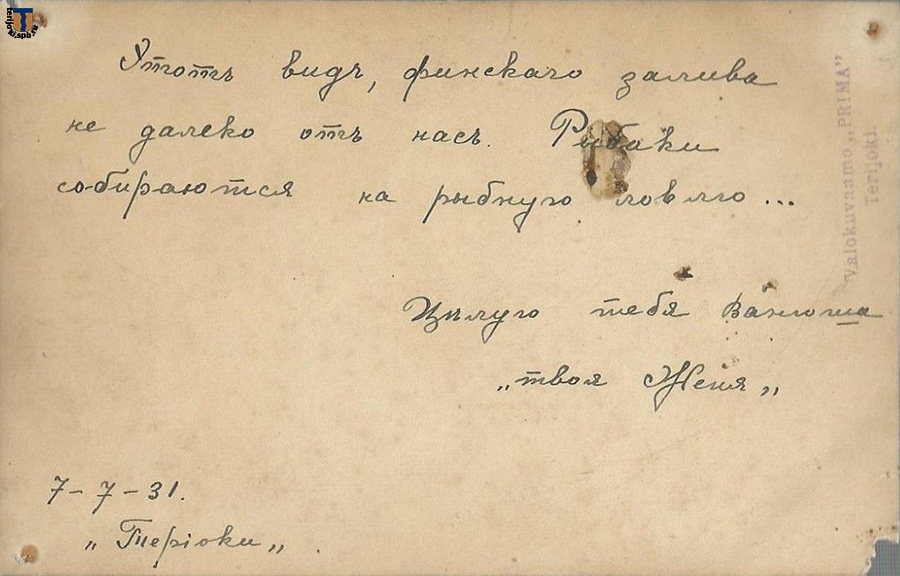 Этотъ видъ, финскаго залива
не далеко отъ насъ. Рыбаки
собираются на рыбную ловлю...
Цѣлую тебя Ванюша
„твоя Женя„
7-7-31.
„Терiоки„
Valokuvaamo „PRIMA"
Terijoki.
terijoki.spb.ru